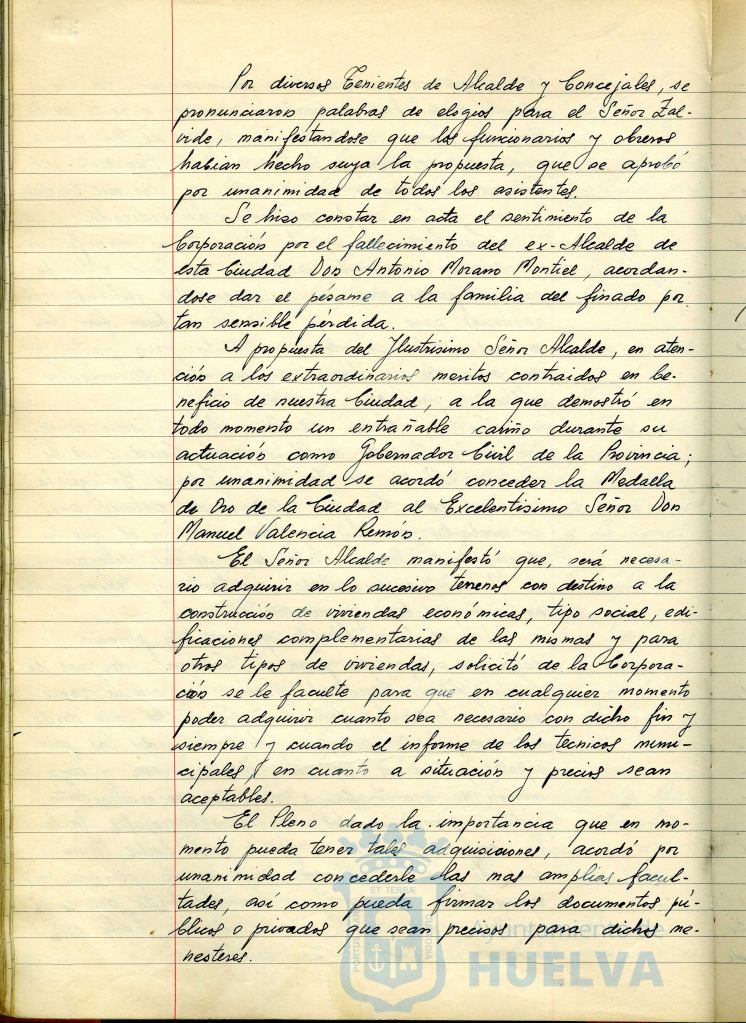 Por diversos Tenientes de Alcalde y Concejales, se
pronunciaron palabras de elogios para el Señor Zal-
vide, manifestandose que los funcionarios y obreros
habian hecho suya la propuesta, que se aprobó
por unanimidad de todos los asistentes.
Se hiso constar en acta el sentimiento de la
Corporación por el fallecimiento del ex-Alcalde de
esta Ciudad Don Antonio Morano Montiel, acordan-
dose dar el pésame a la familia del finado por
tan sensible pérdida.
A propuesta del Ilustrisimo Señor Alcalde, en aten-
ción a los extraordinarios meritos contraidos en be-
neficio de nuestra Ciudad, a la que demostró en
todo momento un entrañable cariño durante su
actuación como Gobernador Civil de la Provincia;
por unanimidad se acordó conceder la Medalla
de Oro de la Ciudad al Excelentisimo Señor Don
Manuel Valencia Remón.
El Señor Alcalde manifestó que, será necesa-
rio adquirir en lo sucesivo terrenos con destino a la
construcción de viviendas económicas, tipo social, edi-
ficaciones complementarias de las mismas y para
otros tipos de viviendas, solicitó de la Corpora-
ción se le faculte para que en cualquier momento
poder adquirir cuanto sea necesario con dicho fin y
siempre y cuando el informe de los tecnicos muni-
cipales, en cuanto a situación y precios sean
aceptables.
El Pleno dado la importancia que en mo-
mento pueda tener tales adquisiciones, acordó por
unanimidad concederle las mas amplias facul-
tades, asi como pueda firmar los documentos pú-
blicos o privados que sean precisos para dichos me-
nesteres.
ET TERRÆ
Ayuntamiento de
HUELVA